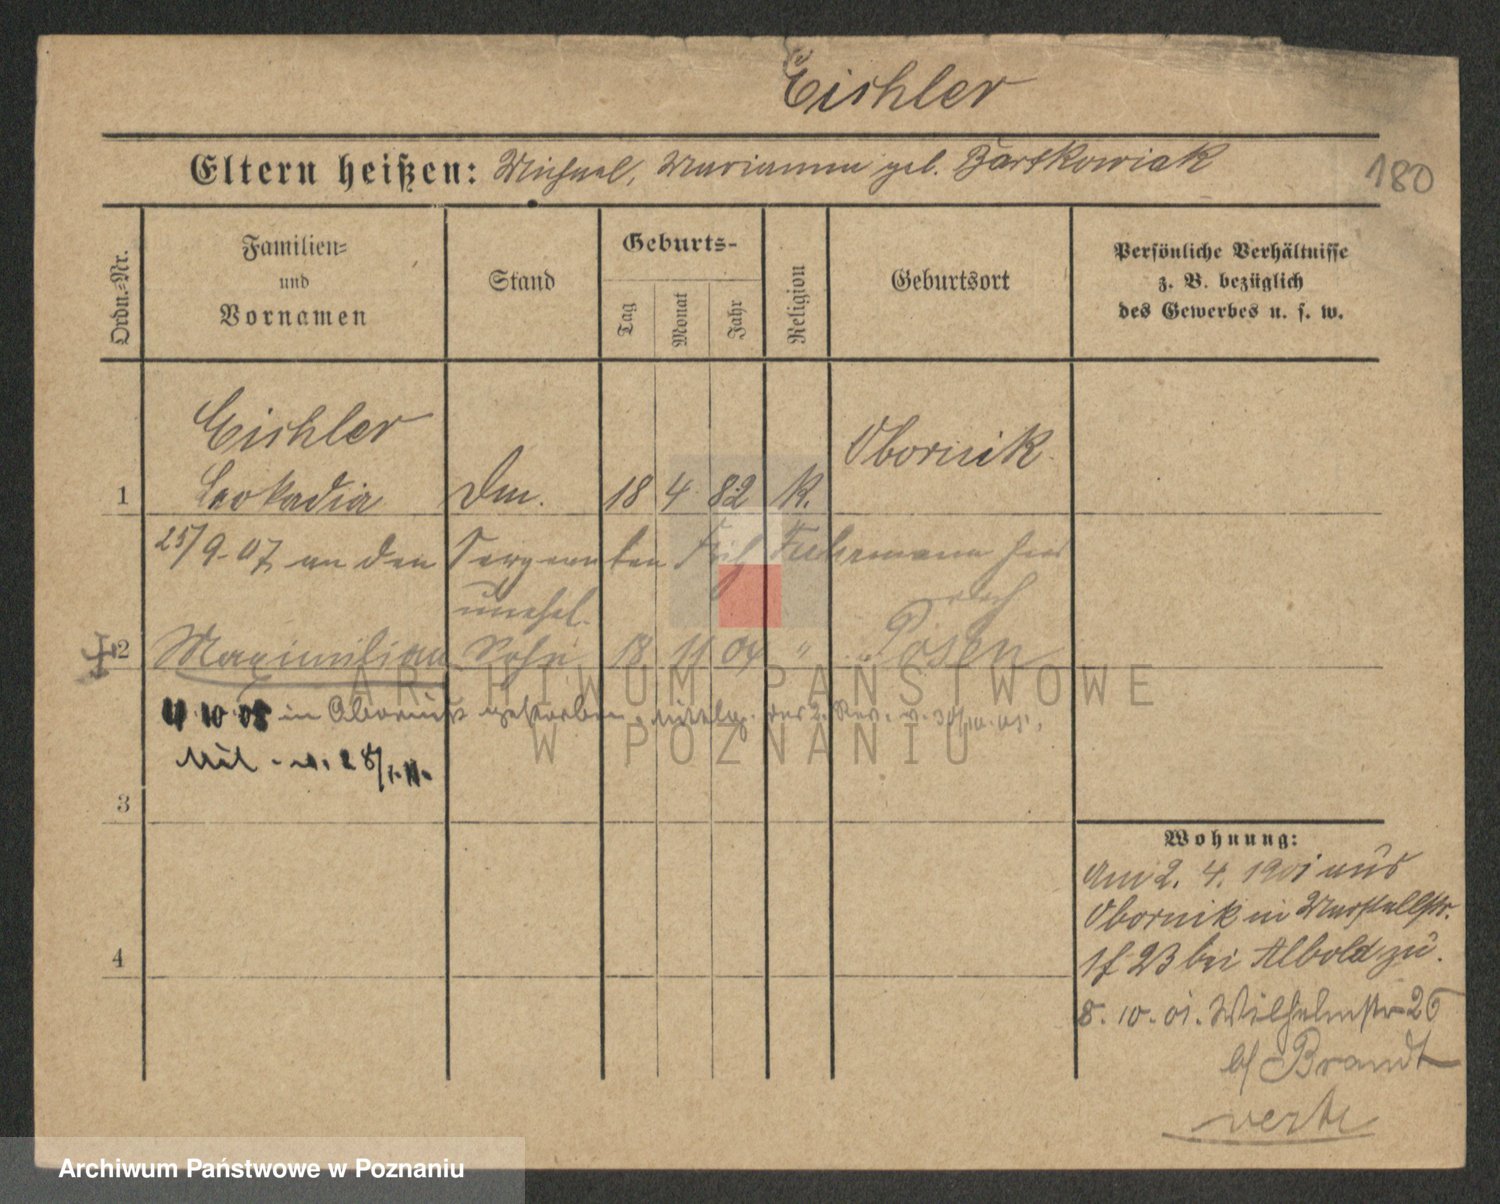 Eichler
Eltern heißen: Michael, Marianna geb. Bartkowiak
180
Ordn.-Nr.
Familien-
und
Vornamen
Stand
Geburts-
Tag
Monat
Jahr
Religion
Geburtsort
Persönliche Verhältnisse
z. B. bezüglich
des Gewerbes u. s. w.
Eichler
Obornik
1 Leokadia Dm. 18 4 82 K.
25/9-07 an den Sergeanten Fuhrmann
unehel. nach
2 Maximilian Sohn 18 11 04 " Posen
4 10 05 in Obornik gestorben,
28/
3
Wohnung:
Am 2. 4. 1901 aus
Obornik in
23 bei Albold zu.
4
8. 10. 01. Wilhelmstr 26
b/ Brandt
verte
ARCHIWUM PAŃSTWOWE
W POZNANIU
Archiwum Państwowe w Poznaniu